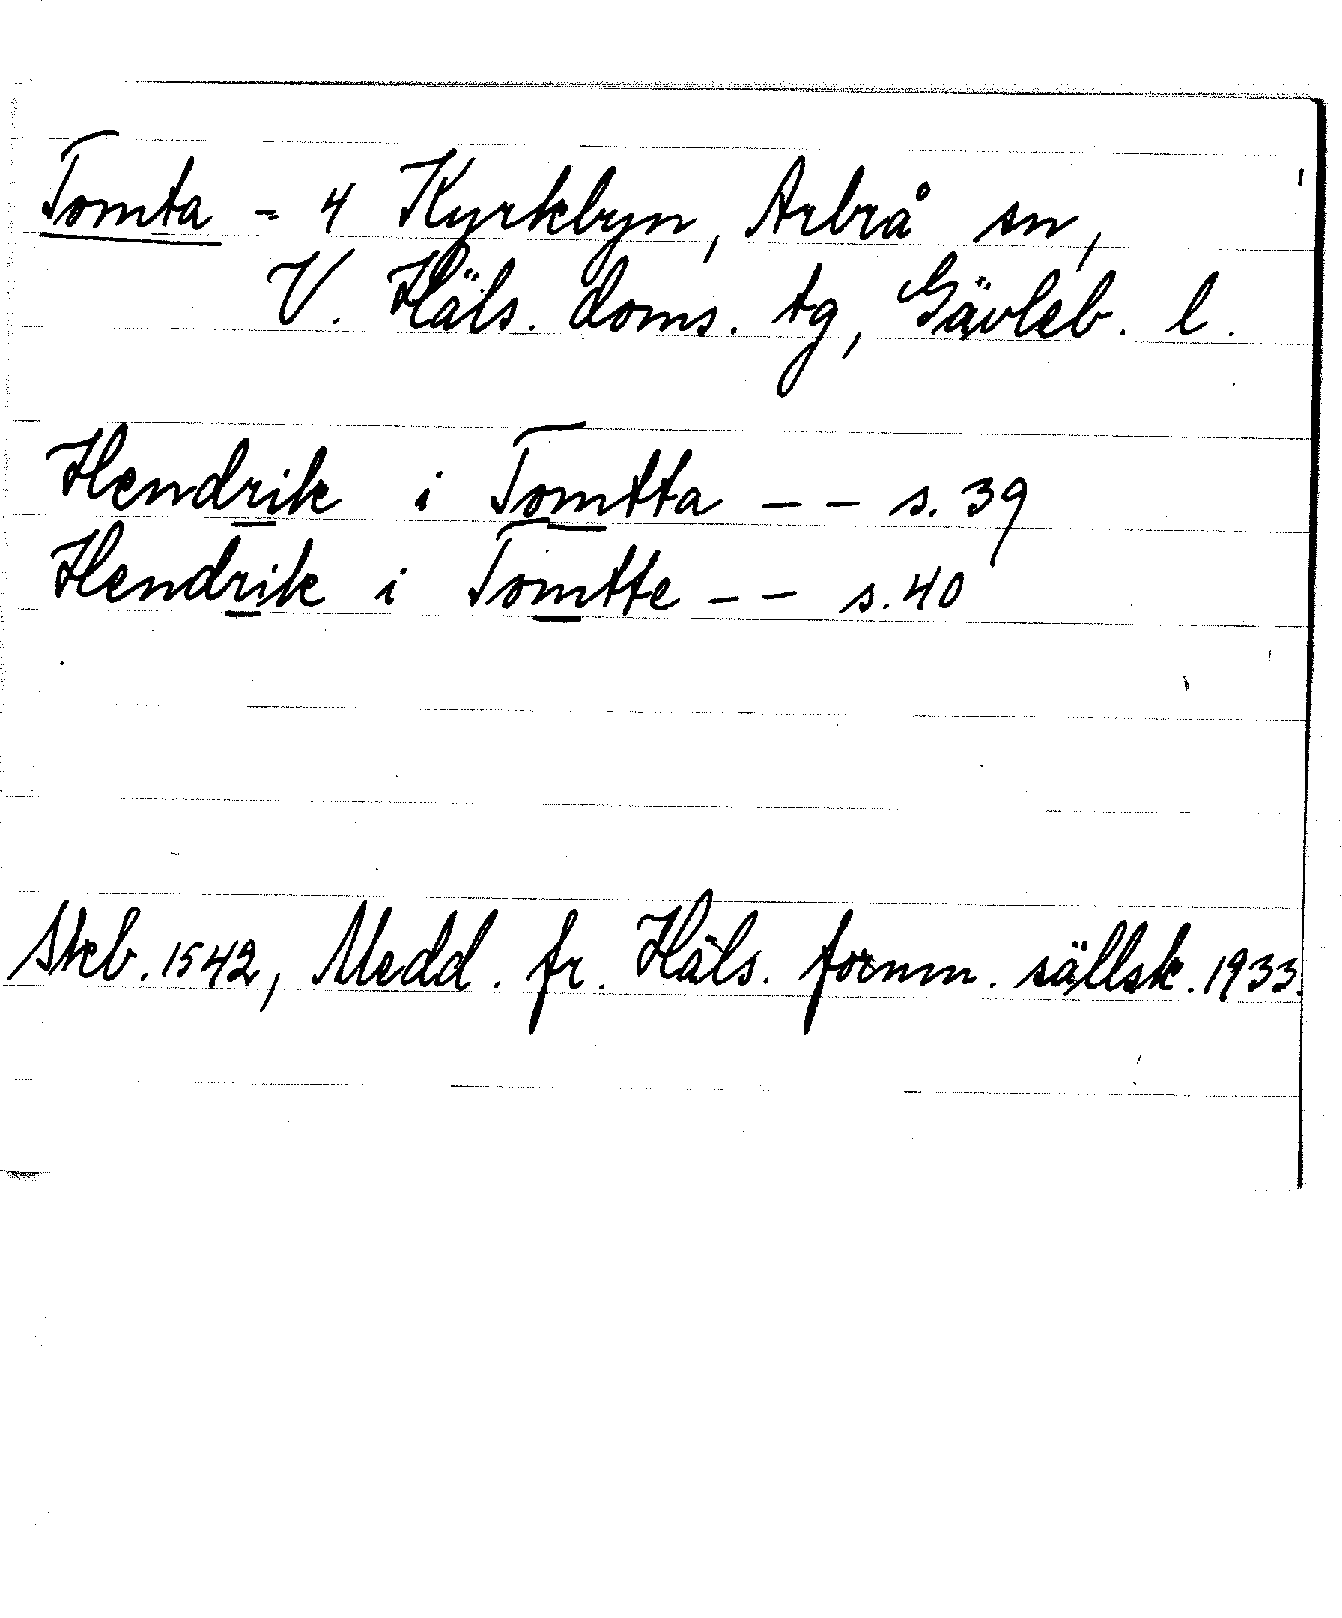 Tomta - 4 Kyrkbyn, Arbrå sn,
V. Häls. doms. tg, Gävleb. l.
Hendrik i Tomtta -- s. 39
Hendrik i Tomtte -- s. 40
Skb. 1542, Medd. fr. Häls. fornm. sällsk. 1933.